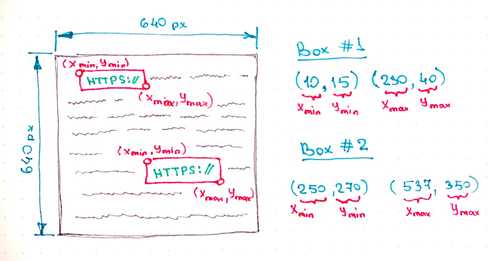 640 px
640 px
(xmin, ymin)
HTTPS://
(xmax, ymax)
(xmin, ymin)
HTTPS://
(xmax, ymax)
Box #1
(10, 15) (290, 40)
xmin ymin xmax ymax
Box #2
(250, 270) (537, 350)
xmin ymin xmax ymax